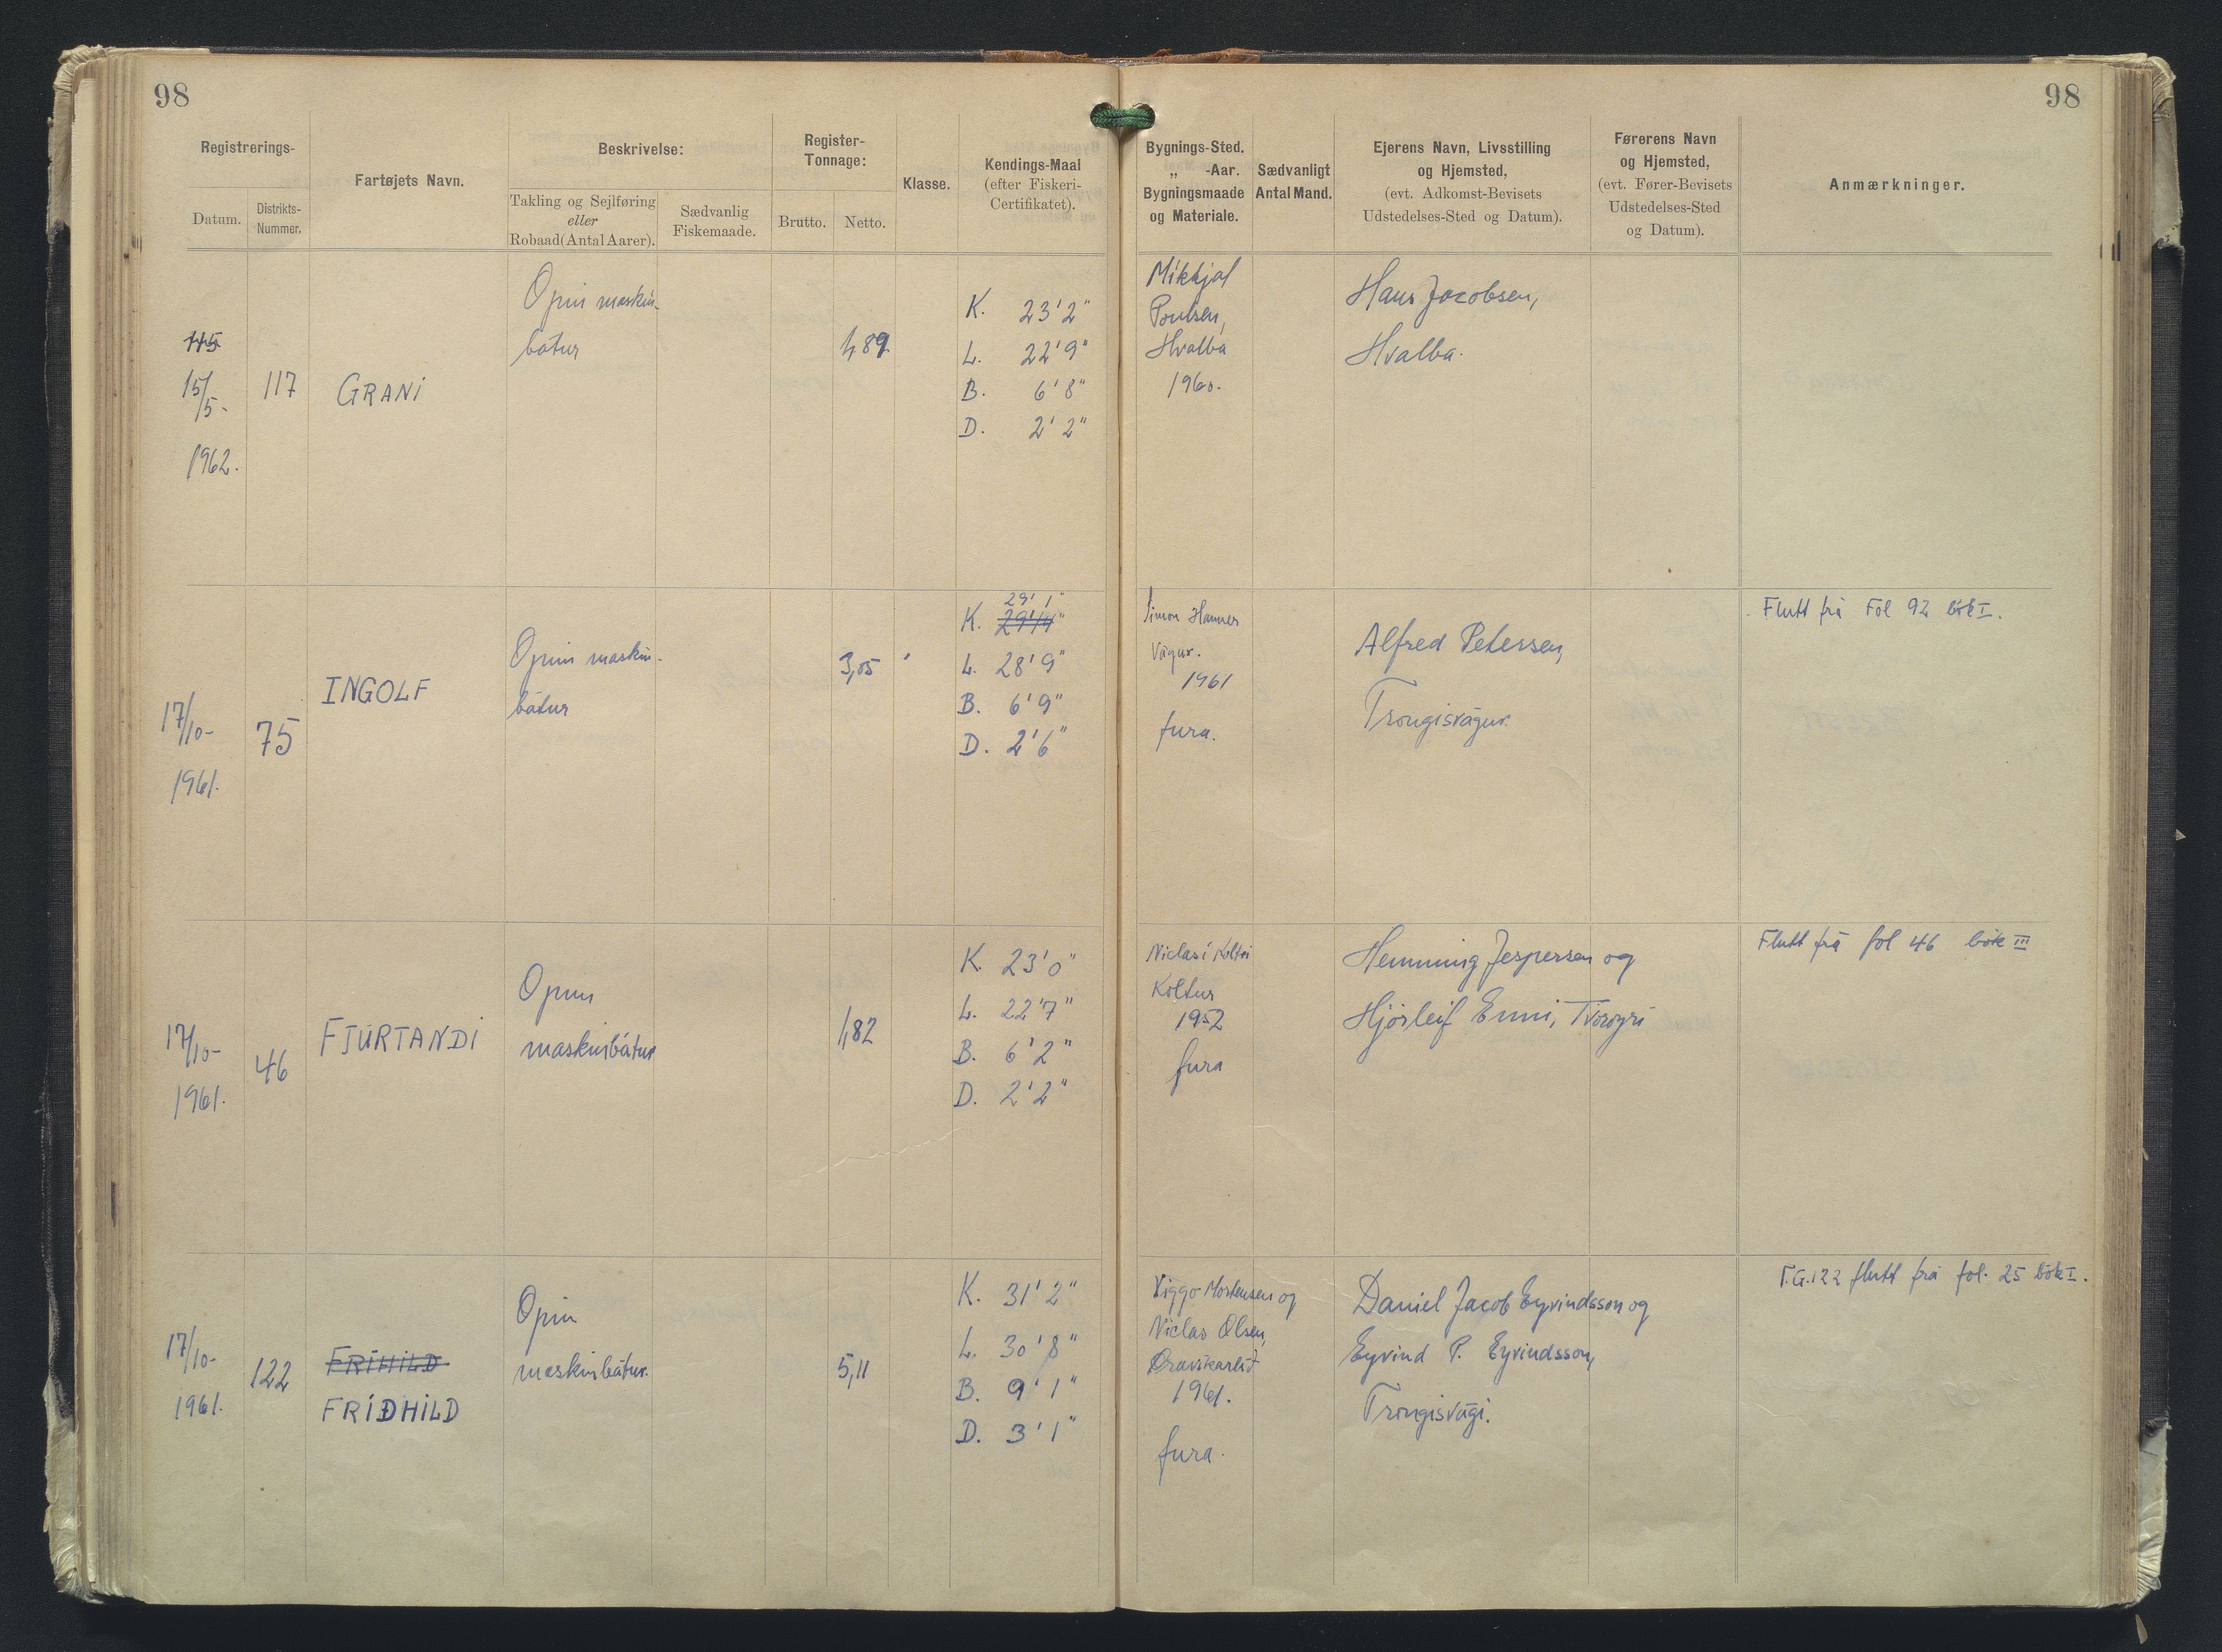 98
98
Registrerings-
Datum.
Distrikts-
Nummer.
Fartøjets Navn.
Beskrivelse:
Takling og Sejlføring
eller
Robaad (Antal Aarer).
Sædvanlig
Fiskemaade.
Register-
Tonnage:
Brutto.
Netto.
Klasse.
Kendings-Maal
(efter Fiskeri-
Certifikatet).
Bygnings-Sted.
„ -Aar.
Bygningsmaade
og Materiale.
Sædvanligt
Antal Mand.
Ejerens Navn, Livsstilling
og Hjemsted,
(evt. Adkomst-Bevisets
Udstedelses-Sted og Datum).
Førerens Navn
og Hjemsted,
(evt. Fører-Bevisets
Udstedelses-Sted
og Datum).
Anmærkninger.
15/5-
1962.
117
GRANI
Opin maskin-
bátur
1,89
K. 23'2"
L. 22'9"
B. 6'8"
D. 2'2"
Mikkjal
Poulsen,
Hvalba
1960.
Hans Jacobsen,
Hvalba.
17/10-
1961.
75
INGOLF
Opin maskin-
bátur
3,05
29'1"
K. 29'4"
L. 28'9"
B. 6'9"
D. 2'6"
Simon Hammer
Vágur.
1961
fura.
Alfred Petersen,
Trongisvágur.
Flutt frá Fol 92 bók I.
17/10-
1961.
46
FJÚRTANDI
Opin
maskinbátur
1,82
K. 23'0"
L. 22'7"
B. 6'2"
D. 2'2"
Niclas í Koltri
Koltur
1952
fura
Hemming Jespersen og
Hjørleif Enni, Tvøroyri
Flutt frá fol 46 bók III
17/10-
1961.
122
FRÍHILD
FRÍÐHILD
Opin
maskinbátur.
5,11
K. 31'2"
L. 30'8"
B. 9'1"
D. 3'1"
Viggo Mortensen og
Niclas Olsen,
1961.
fura.
Daniel Jacob Eyvindsson og
Eyvind P. Eyvindsson,
Trongisvági.
T.G.122 flutt frá fol. 25 bók I.